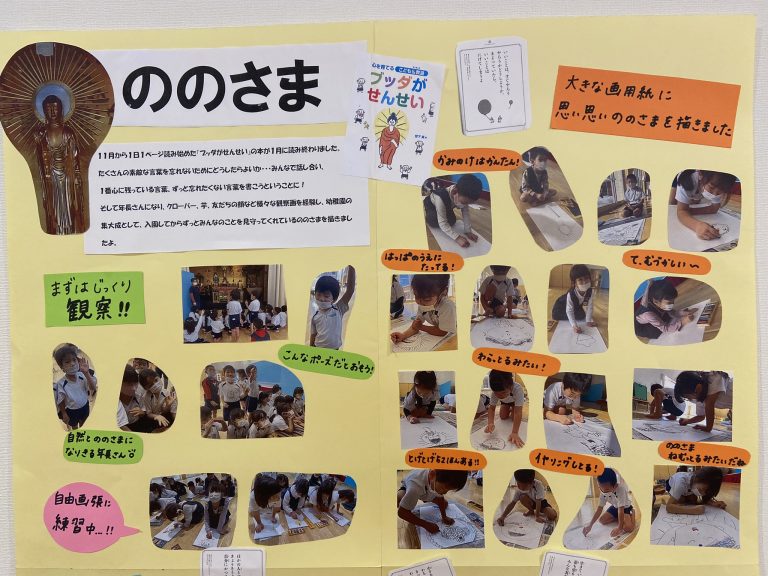 ののさま
11月から1日1ページ読み始めた「ブッダがせんせい」の本が1月に読み終わりました。
たくさんの素敵な言葉を忘れないためにどうしたらよいか・・・みんなで話し合い、
1番心に残っている言葉、ずっと忘れたくない言葉を書こうということに！
そして年長さんになり、クローバー、芋、友だちの顔など様々な観察画を経験し、幼稚園の
集大成として、入園してからずっとみんなのことを見守ってくれているののさまを描きまし
たよ。
心を育てる
こども仏教
ブッダが
せんせい
大きな画用紙に
思い思いののさまを描きました
まずはじっくり
観察!!
こんなポーズだとおもう!
自然とののさまに
なりきる年長さん
自由画張に
練習中…!!
かみのけはかんたん!
はっぱのうえに
たってる!
て、むづかしい〜
わらっとるみたい!
とげとげも52ほんある!!
イヤリングしとる!
ののさま
ねむっとるみたいだね